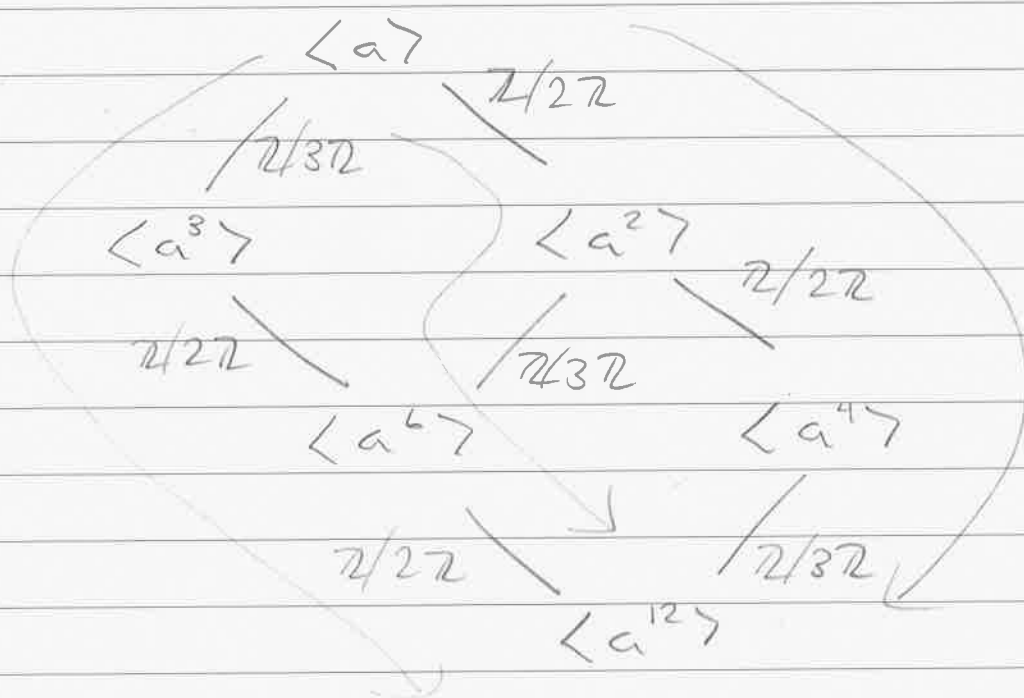 <a>
ℤ/2ℤ
ℤ/3ℤ
<a³> <a²>
ℤ/2ℤ
ℤ/2ℤ ℤ/3ℤ
<a⁶> <a⁴>
ℤ/2ℤ ℤ/3ℤ
<a¹²>